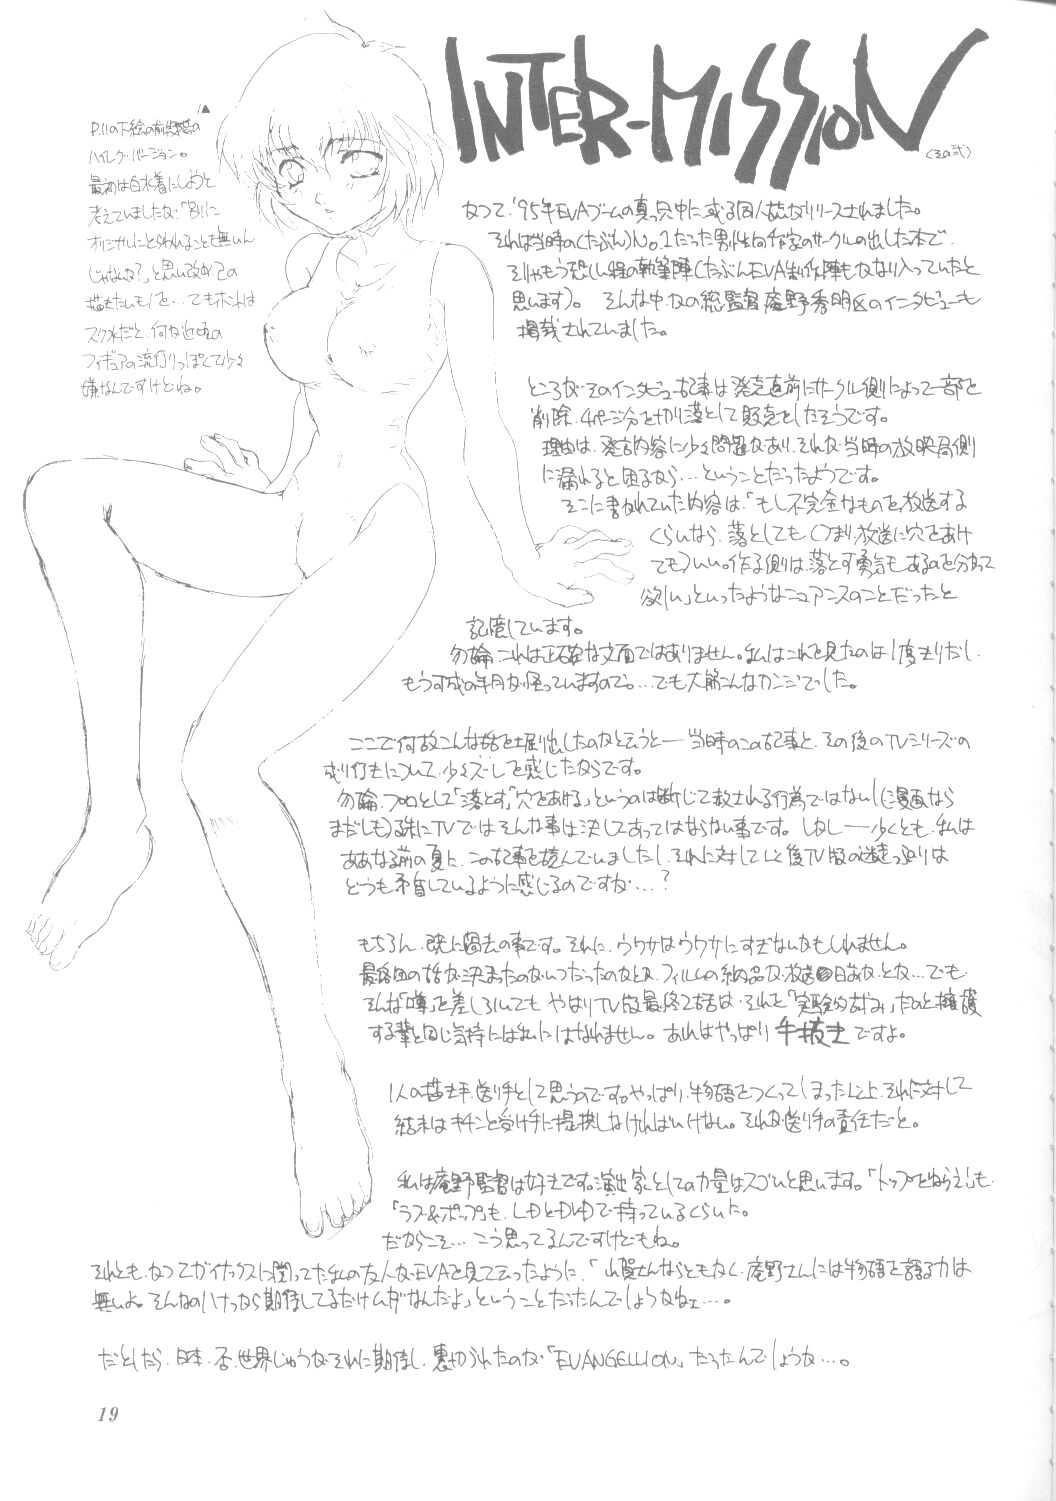 INTER-MISSION
(その弐)
P.11の下絵の前段階の
ハイレグ・バージョン。
最初は白水着にしようと
考えていましたが「別に
オリジナルにとらわれることも無いん
じゃないか?」と思い改めこの
描きたいモノを…でもホントは
スク水だと、何か近頃の
フィギュアの流行りっぽくて少々
嫌なんですけどね。
かつて、'95年EVAブームの真っ只中に或る同人誌がリリースされました。
それは当時の(たぶん)No.1だった男性向作家のサークルの出した本で、
そりゃもう恐しい程の執筆陣(たぶんEVA制作陣もかなり入っていたと
思います)。そんな中かの総監督庵野秀明氏のインタビューも
掲載されていました。
ところが、そのインタビュー記事は発売直前にサークル側によって一部を
削除、4ページ分を切り落として販売をしたそうです。
理由は、発言内容に少々問題があり、それが当時の放映局側
に漏れると困るから…ということだったようです。
そこに書かれていた内容は、「もし不完全なものを放送する
くらいなら、落としても(つまり、放送に穴をあけ
ても)いい。作る側は、落とす勇気もあるのを分かって
欲しい」といったようなニュアンスのことだったと
記憶しています。
勿論、これは正確な文面ではありません。私はこれを見たのは1度きりだし、
もう可成の年月が経っていますので。…でも大筋こんなカンジでした。
ここで何故こんな話を掘り出したのかと云うと――当時のこの記事と、その後のTVシリーズの
成り行きについて、少々ズレを感じたからです。
勿論、プロとして「落とす」「穴をあける」というのは断じて赦される行為ではない(漫画なら
まだしも)殊にTVではそんな事は決してあってはならない事です。しかし――少くとも、私は
ああなる前の夏に、この記事を読んでいましたし、それに対して以後TV版の迷走っぷりは
どうも矛盾しているように感じるのですが…?
もちろん、既に過去の事です。それに、ウワサはウワサにすぎないかもしれません。
最終回の話が決まったのがいつだったのかとか、フィルムの納品が放送日前だとか…でも
そんな「噂」を差し引いても、やはりTV版最終2話は、それを「実験的試み」だのと擁護
する輩と同じ気持には私にはなれません。あれはやっぱり手抜きですよ。
1人の描き手、送り手として思うのです。やっぱり、物語をつくってしまった以上、それに対して
結末はキチンと受け手に提携しなければいけない。それが送り手の責任だと。
私は庵野監督は好きです。演出家としての力量はスゴいと思います。「トップをねらえ!」も
「ラブ&ポップ」も、LDとDVDで持っているくらいだ。
だからこそ…こう思ってるんですけどもね。
それとも、かつてガイナックスに関ってた私の友人がEVAを見て云ったように、「山賀さんならともかく、庵野さんには物語を語る力は
無いよ。そんなのハナっから期待してるだけムダなんだよ」ということだったんでしょうかねェ…。
だとしたら、日本、否、世界じゅうがそれに期待し、裏切られたのが「EVANGELLION」だったんでしょうか…。
19